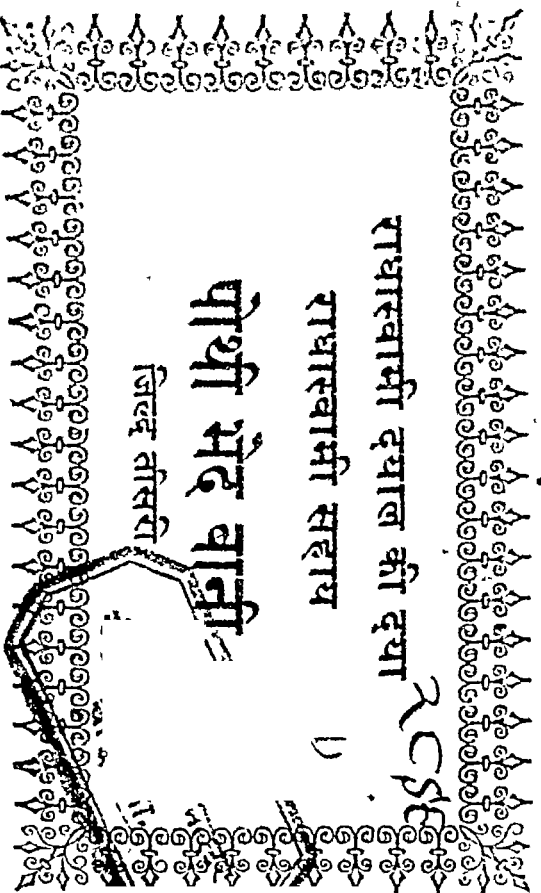 राधास्वामी दयाल की दया
राधास्वामी सहाय
पोथी भेद बानी
जिल्द तीसरी